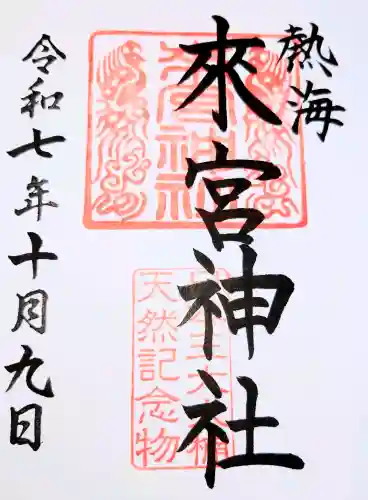 熱海
來宮神社
來宮神社
天然記念物
令和七年十月九日